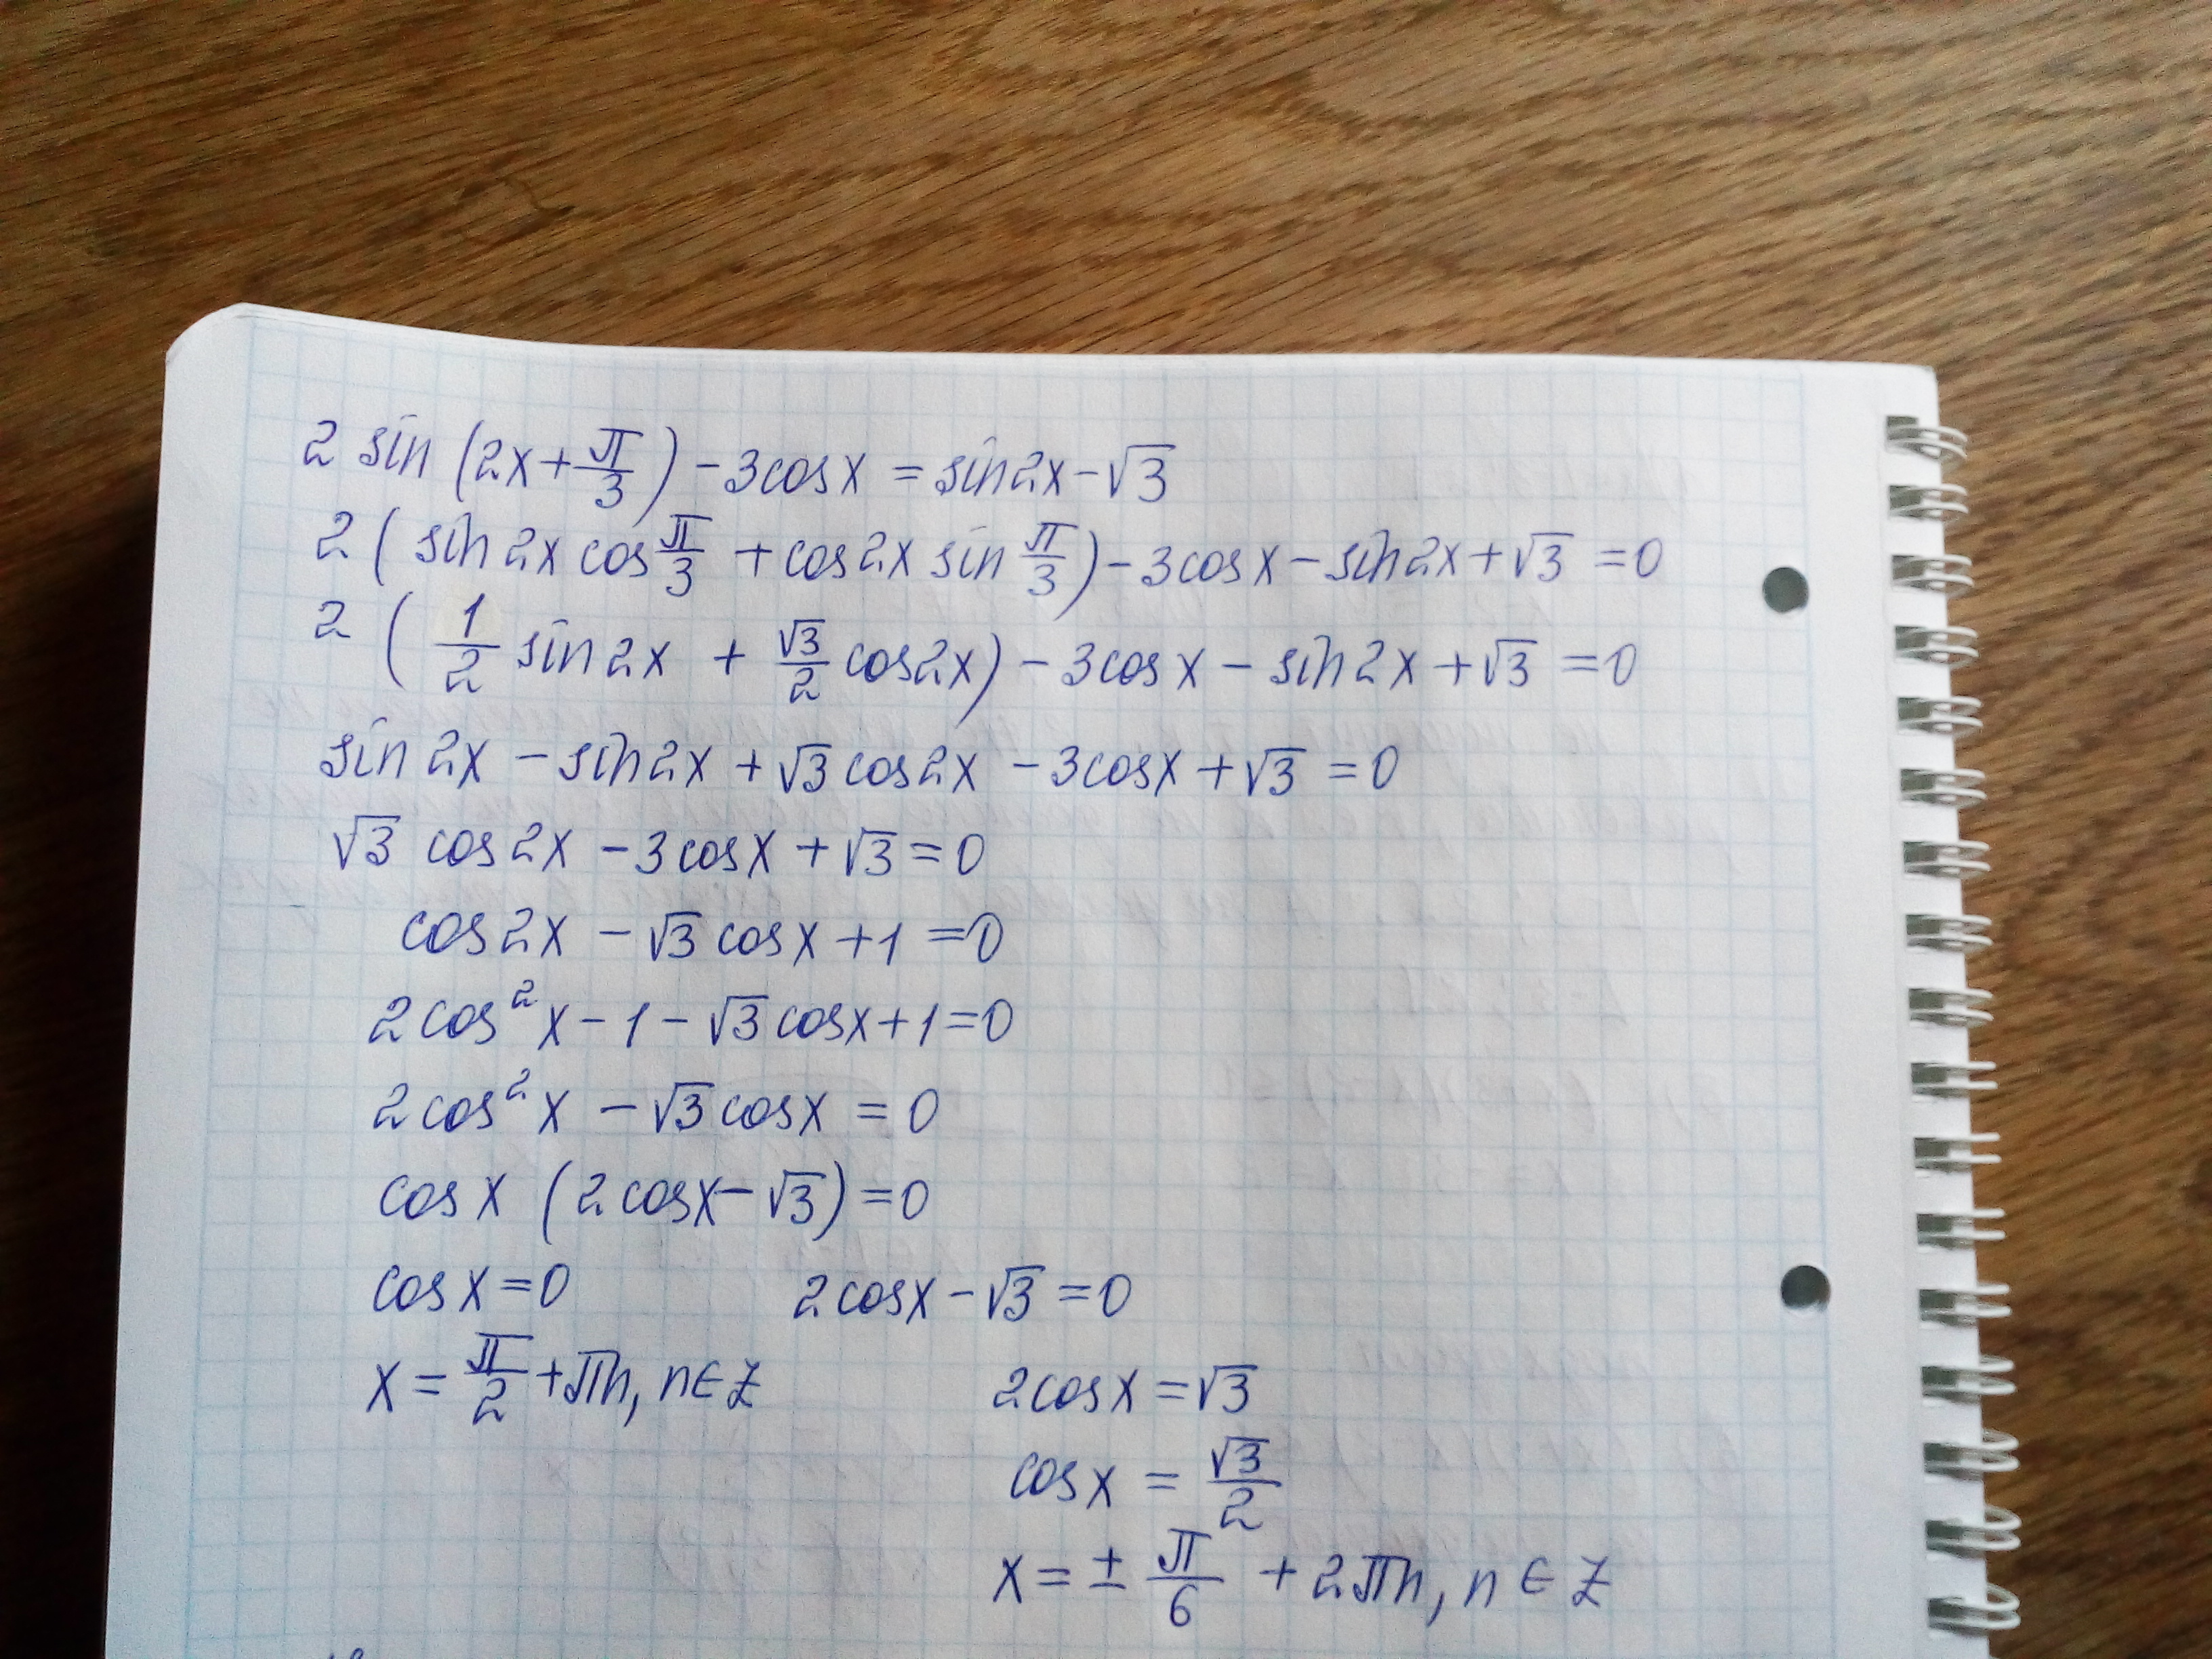 2 sin (2x + π/3) − 3cosx = sin2x − √3
2 ( sin 2x cos π/3 + cos2x sin π/3 ) − 3cosx − sin2x + √3 = 0
2 ( 1/2 sin 2x + √3/2 cos2x ) − 3cosx − sin2x + √3 = 0
sin 2x − sin2x + √3 cos2x − 3cosx + √3 = 0
√3 cos2x − 3cosx + √3 = 0
cos2x − √3 cosx + 1 = 0
2cos²x − 1 − √3 cosx + 1 = 0
2cos²x − √3 cosx = 0
cosx (2cosx − √3) = 0
cosx = 0 2cosx − √3 = 0
x = π/2 + πn, n∈Z 2cosx = √3
cosx = √3/2
x = ± π/6 + 2πn, n ∈ Z